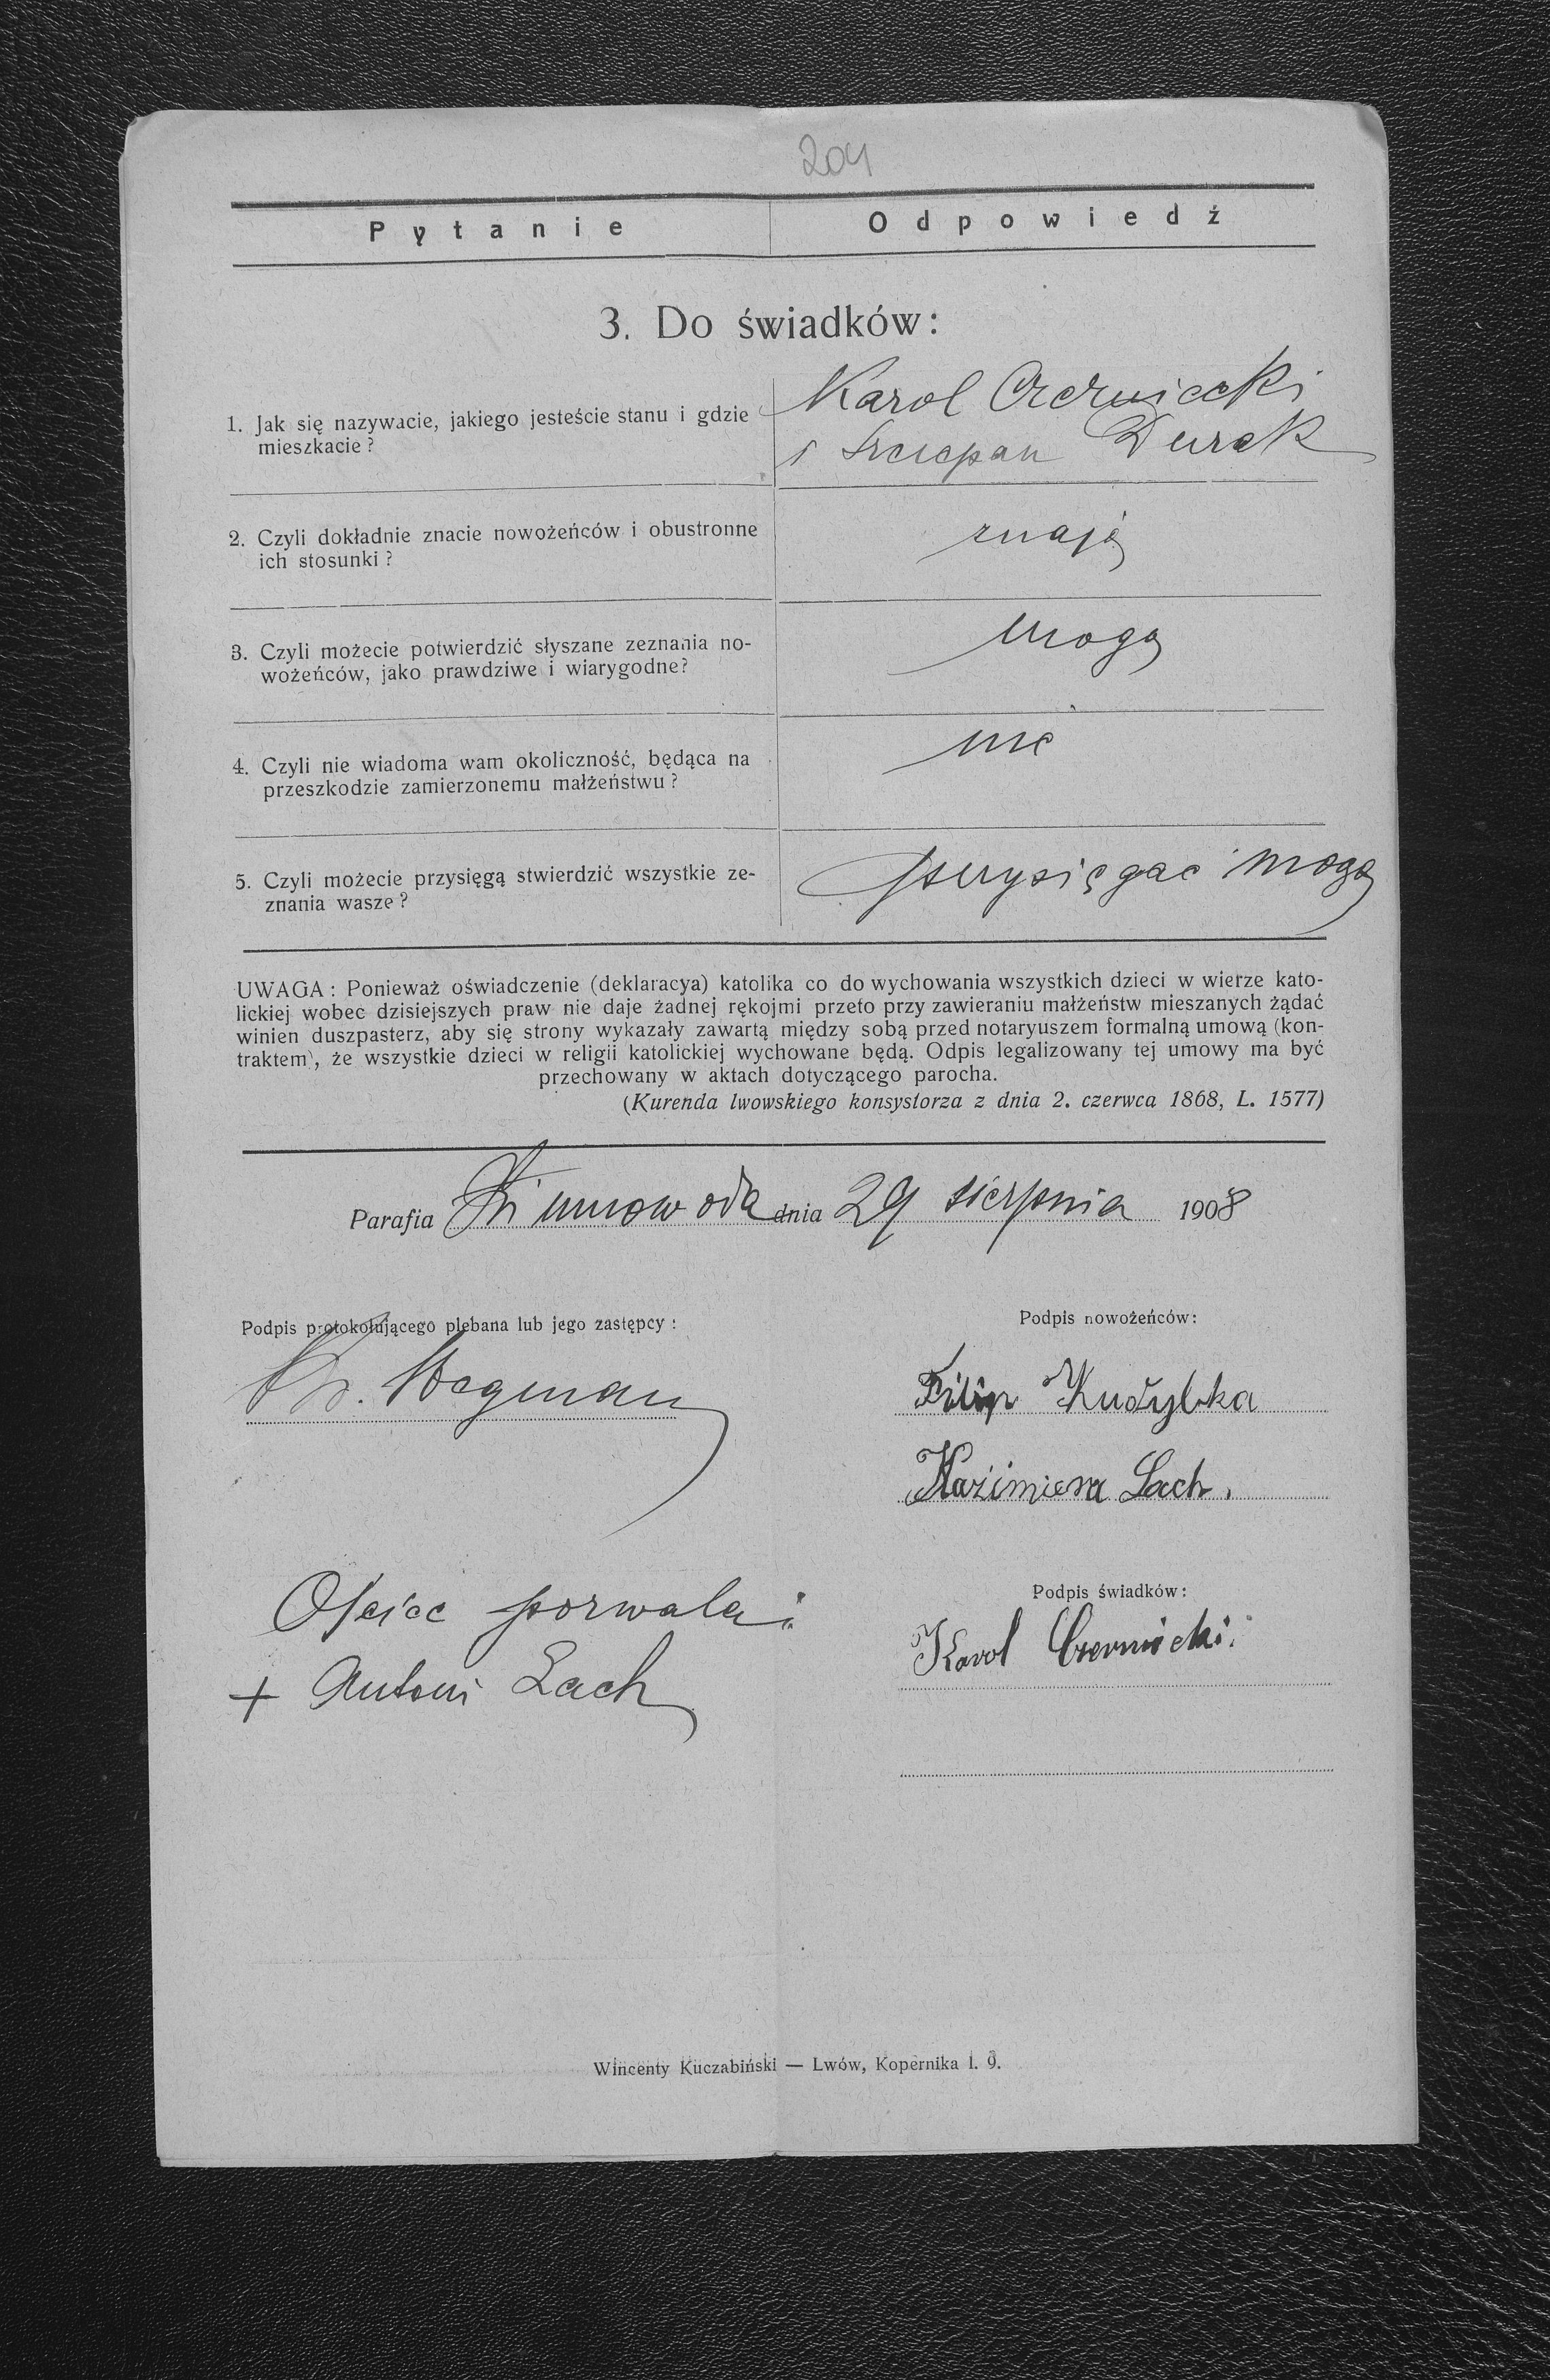 204
Pytanie Odpowiedź
3. Do świadków:
1. Jak się nazywacie, jakiego jesteście stanu i gdzie
mieszkacie?
Karol Czerniecki
i Szczepan Durek
2. Czyli dokładnie znacie nowożeńców i obustronne
ich stosunki?
znają
3. Czyli możecie potwierdzić słyszane zeznania no-
wożeńców, jako prawdziwe i wiarygodne?
mogą
4. Czyli nie wiadoma wam okoliczność, będąca na
przeszkodzie zamierzonemu małżeństwu?
nie
5. Czyli możecie przysięgą stwierdzić wszystkie ze-
znania wasze?
przysięgać mogą
UWAGA: Ponieważ oświadczenie (deklaracya) katolika co do wychowania wszystkich dzieci w wierze kato-
lickiej wobec dzisiejszych praw nie daje żadnej rękojmi przeto przy zawieraniu małżeństw mieszanych żądać
winien duszpasterz, aby się strony wykazały zawartą między sobą przed notaryuszem formalną umową (kon-
traktem), że wszystkie dzieci w religii katolickiej wychowane będą. Odpis legalizowany tej umowy ma być
przechowany w aktach dotyczącego parocha.
(Kurenda lwowskiego konsystorza z dnia 2. czerwca 1868, L. 1577)
Parafia Zimnowoda dnia 29 sierpnia 1908
Podpis protokołującego plebana lub jego zastępcy:
Wagman
Podpis nowożeńców:
Filip Kudybka
Kazimiera Lach.
Ojciec pozwala:
+ Antoni Lach
Podpis świadków:
Karol Czernicki.
Wincenty Kuczabiński — Lwów, Kopernika l. 9.